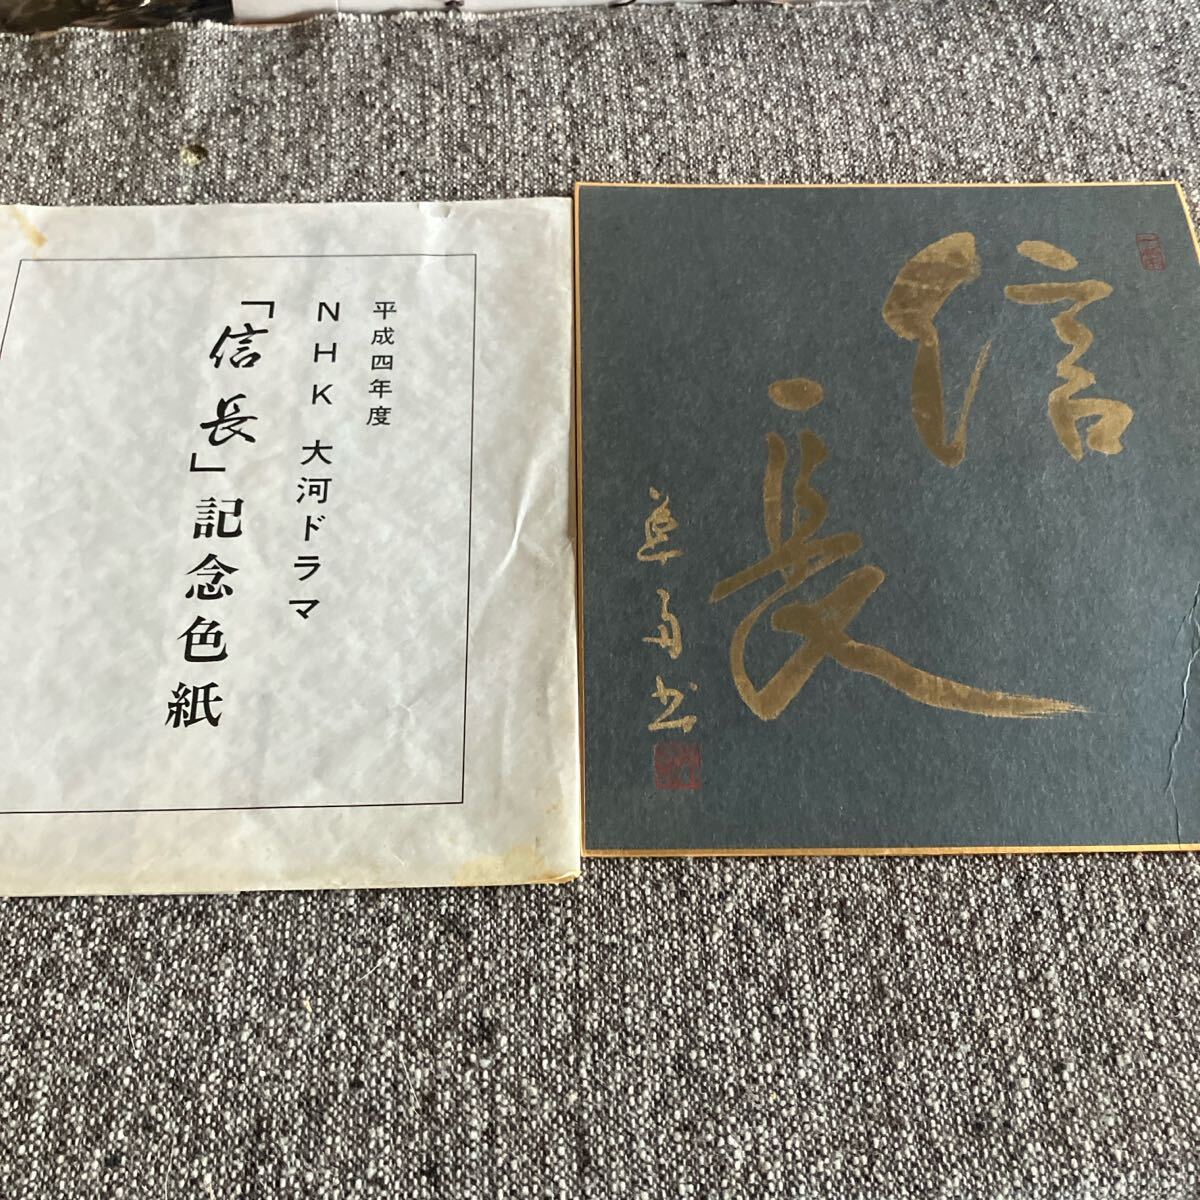 平成四年度
NHK 大河ドラマ
「信長」記念色紙
信
長
書